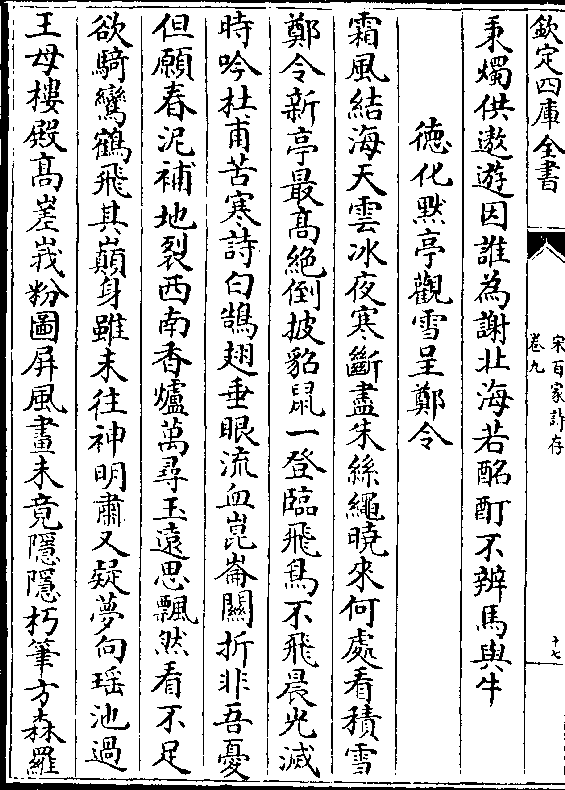 欽定四庫全書
宋百家詩存
卷九
十七
秉燭供遨遊因誰為謝北海若酩酊不辨馬與牛
德化默亭觀雪呈鄭令
霜風結海天雲冰夜寒斷盡朱絲繩曉來何處看積雪
鄭令新亭最高絕倒披貂鼠一登臨飛鳥不飛晨光滅
時吟杜甫苦寒詩白鵠翅垂眼流血崑崙關折非吾憂
但願春泥補地裂西南香爐萬尋玉遠思飄然看不足
欲騎鸞鶴飛其巔身雖未往神明肅又疑夢向瑶池過
王母樓殿高嵳峩粉圖屏風畫未竟隱隱朽筆方森羅